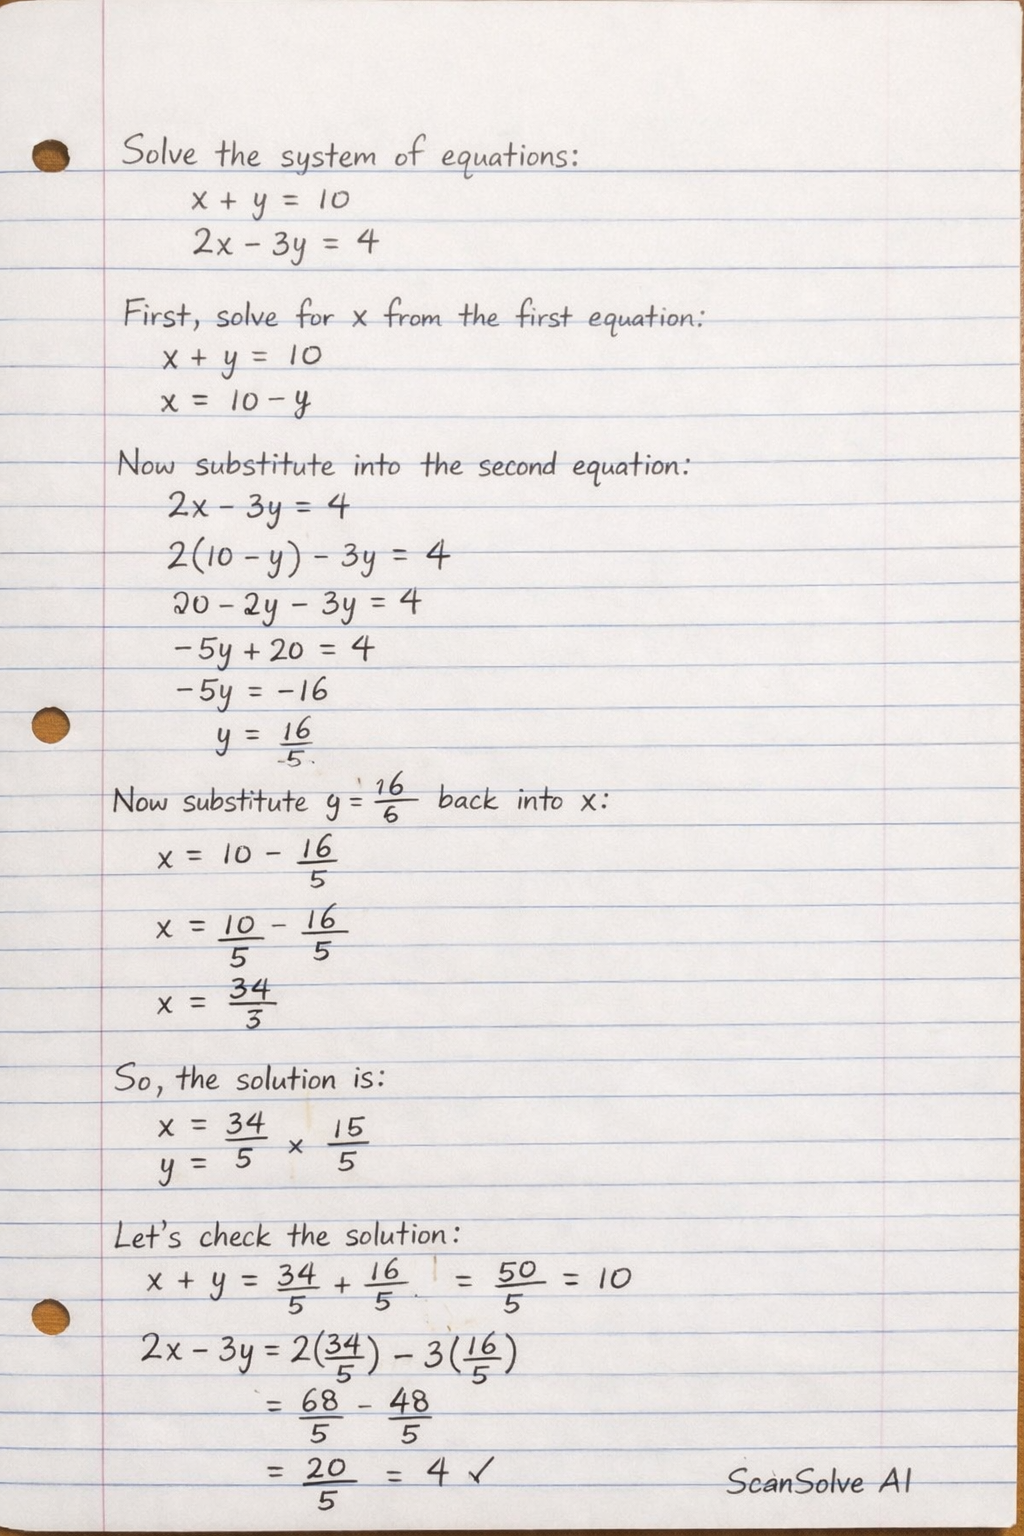 Solve the system of equations:
x + y = 10
2x - 3y = 4
First, solve for x from the first equation:
x + y = 10
x = 10 - y
Now substitute into the second equation:
2x - 3y = 4
2(10 - y) - 3y = 4
20 - 2y - 3y = 4
-5y + 20 = 4
-5y = -16
y = 16/5
Now substitute y = 16/6 back into x:
x = 10 - 16/5
x = 10/5 - 16/5
x = 34/3
So, the solution is:
x = 34/5 × 15/5
y =
Let's check the solution:
x + y = 34/5 + 16/5 = 50/5 = 10
2x - 3y = 2(34/5) - 3(16/5)
= 68/5 - 48/5
= 20/5 = 4 ✓
ScanSolve AI